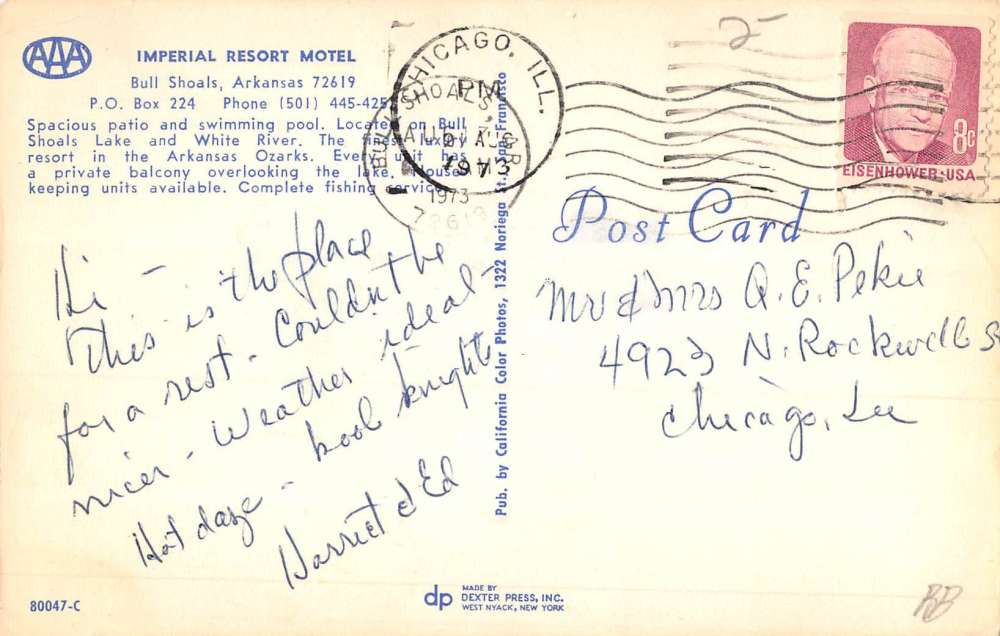 AAA
IMPERIAL RESORT MOTEL
Bull Shoals, Arkansas 72619
P.O. Box 224 Phone (501) 445-425
Spacious patio and swimming pool. Located on Bull
Shoals Lake and White River. The finest luxury
resort in the Arkansas Ozarks. Every unit has
a private balcony overlooking the lake. House
keeping units available. Complete fishing service
Hi –
This is the place
for a rest – Couldn't be
nicer – Weather ideal –
Hot daze – kool knights
Harriet & Ed
80047-C
Pub. by California Color Photos, 1322 Noriega St., San Francisco
CHICAGO, ILL.
PM
AUG
1973
BULL SHOALS, AR
AUG
AM
1973
72619
2
EISENHOWER·USA
8c
Post Card
Mr & Mrs Q. E. Pekie
4923 N. Rockwell St
Chicago, Ill
dp
MADE BY
DEXTER PRESS, INC.
WEST NYACK, NEW YORK
BB